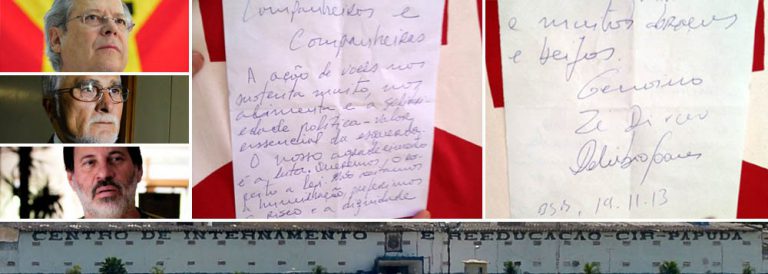 Companheiros e
Companheiras
A ação de vocês nos
sustenta muito, nos
alimenta e a solidari-
edade política-valor
essencial da esquerda.
O nosso agradecimento
é a luta. Queremos, o res-
peito a lei. Não aceitamos
a humilhação, preferimos
o risco e a dignidade
e muitos abraços
e beijos.
Genoino
Ze Dirceu
Delubio Soares
BSB, 19.11.13
CENTRO DE INTERNAMENTO E REEDUCAÇÃO-CIR-PAPUDA